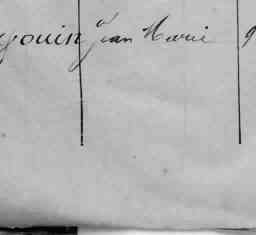 gouin Jean Marie